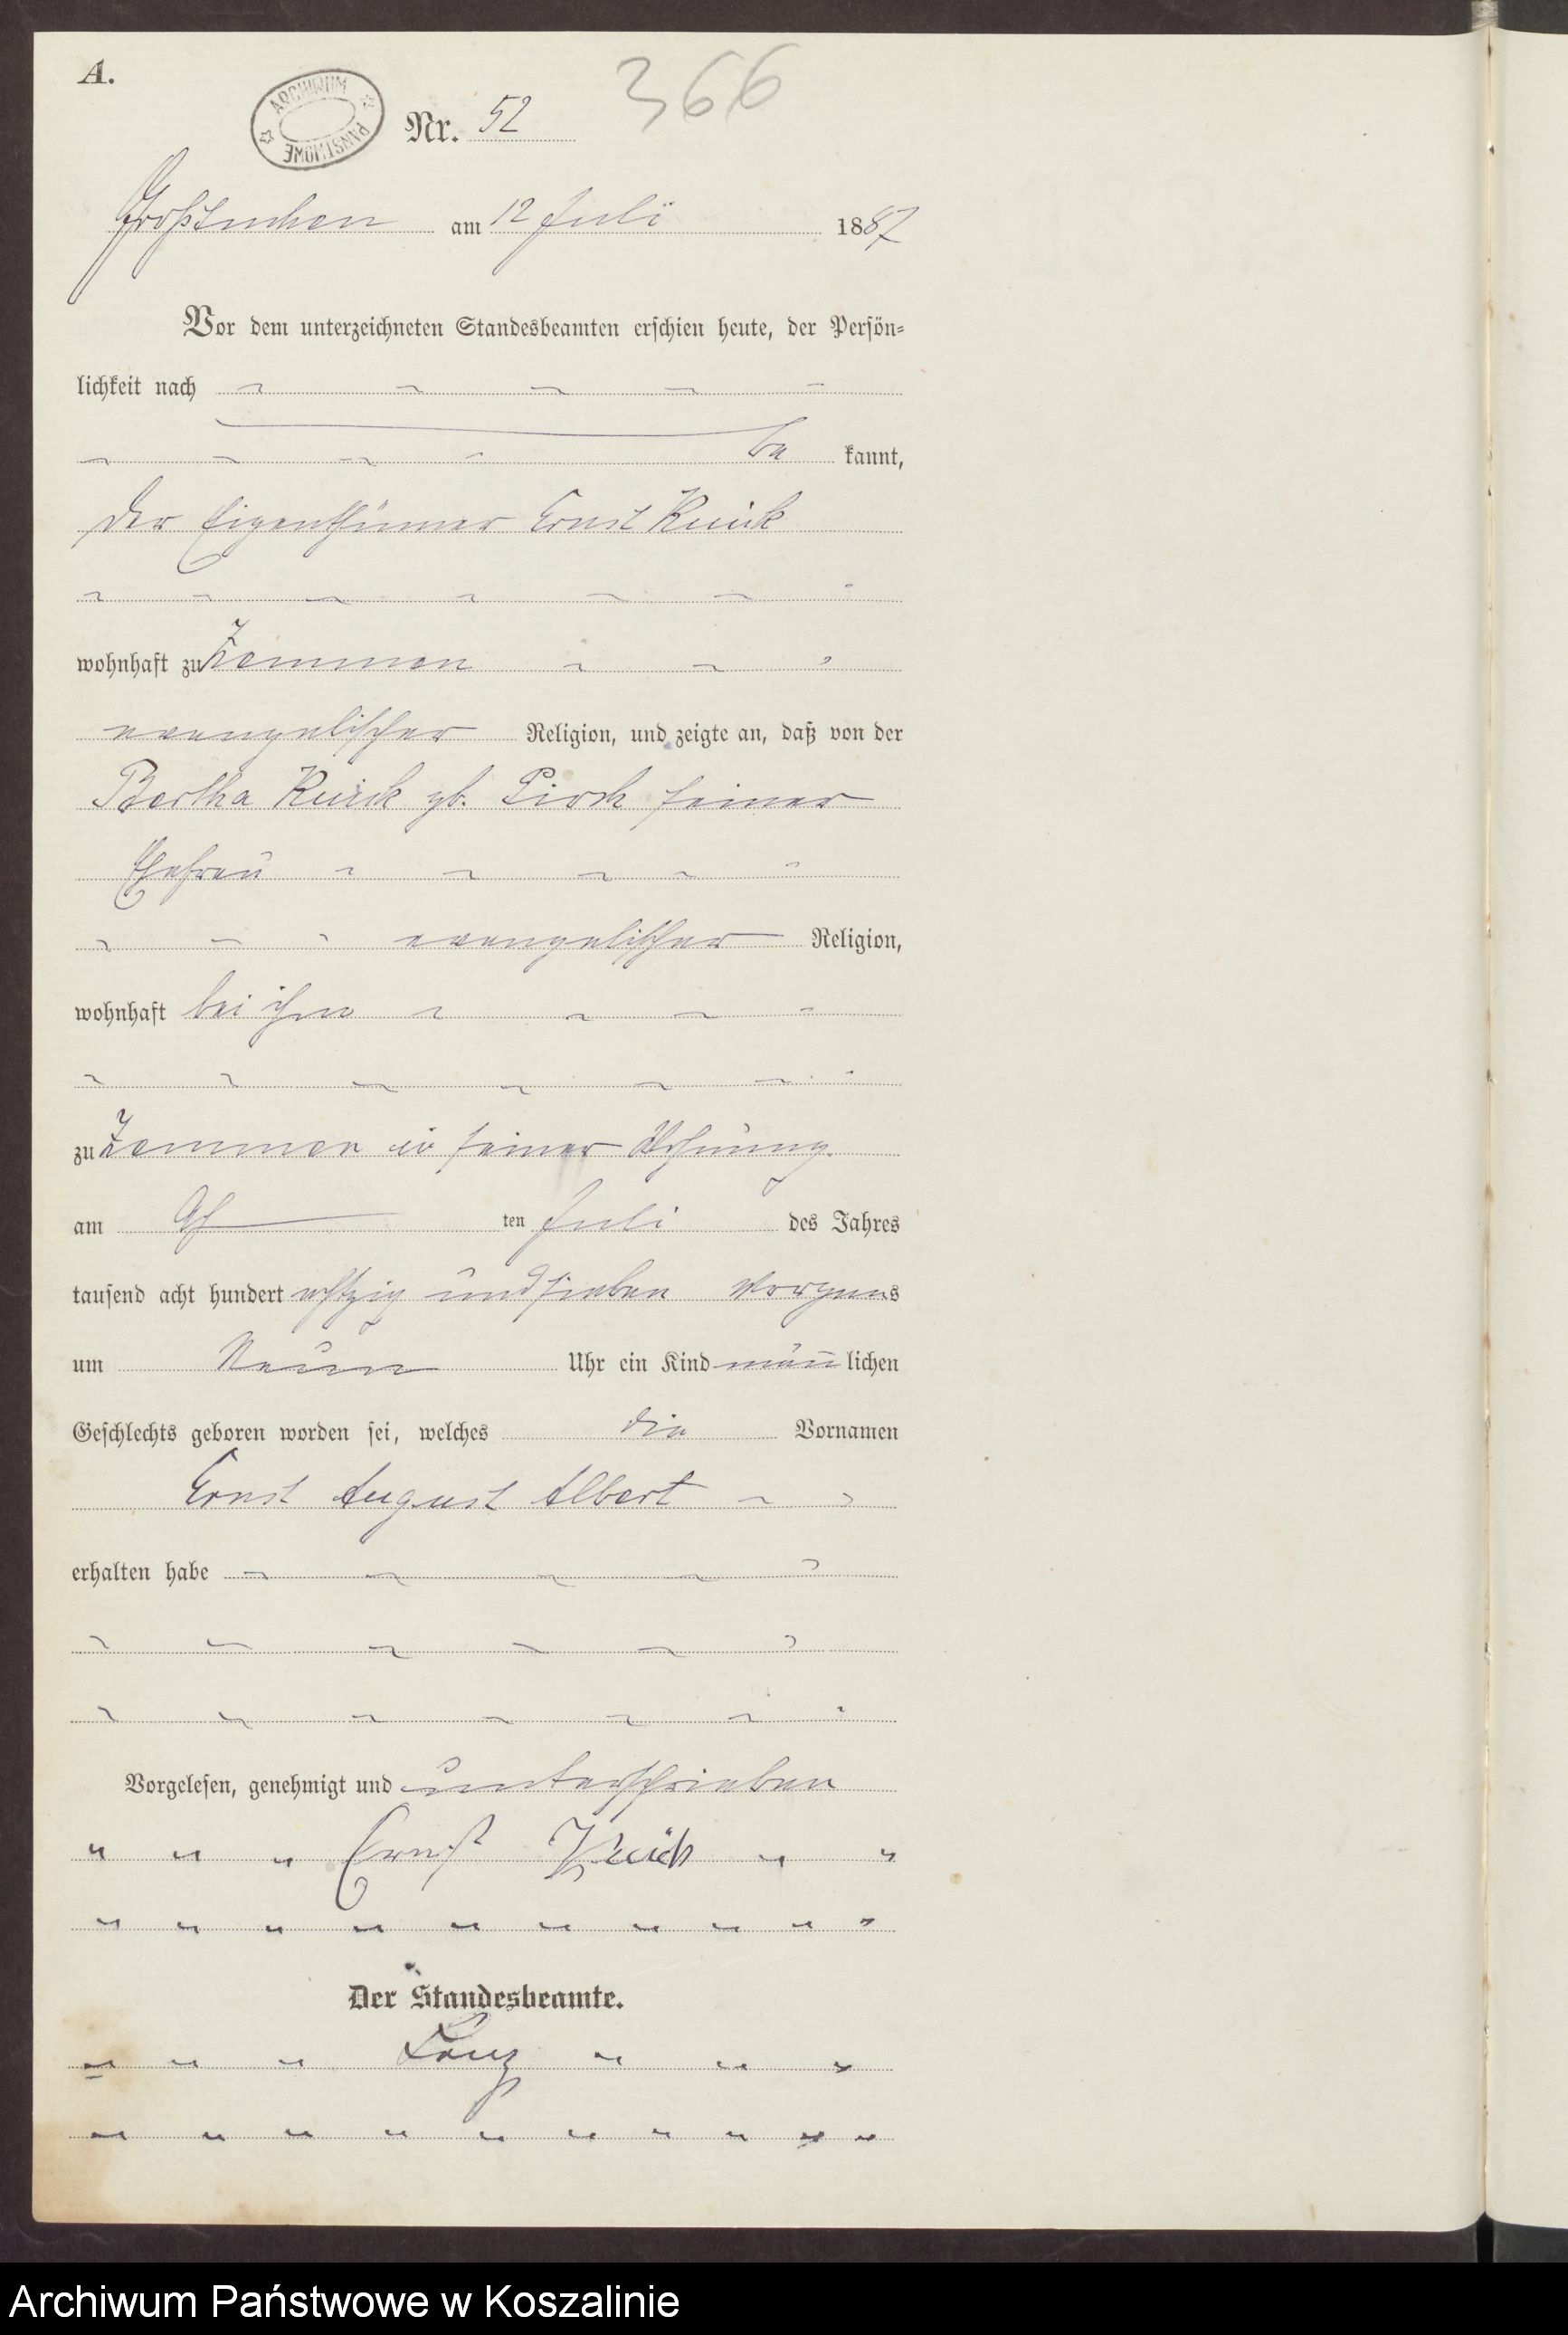 A.
ARCHIWUM PAŃSTWOWE
366
Nr. 52
Großtuchen am 12 Juli 1887
Vor dem unterzeichneten Standesbeamten erschien heute, der Persön-
lichkeit nach
be kannt,
der Eigenthümer Ernst
wohnhaft zu Zemmen
evangelischer Religion, und zeigte an, daß von der
Bertha gb. Pirch seiner
Ehefrau
evangelischer Religion,
wohnhaft bei ihm
zu Zemmen in seiner Wohnung
am ten Juli des Jahres
tausend acht hundert achtzig und sieben Morgens
um Neun Uhr ein Kind männlichen
Geschlechts geboren worden sei, welches die Vornamen
Ernst August Albert
erhalten habe
Vorgelesen, genehmigt und unterschrieben
Ernst
Der Standesbeamte.
Archiwum Państwowe w Koszalinie